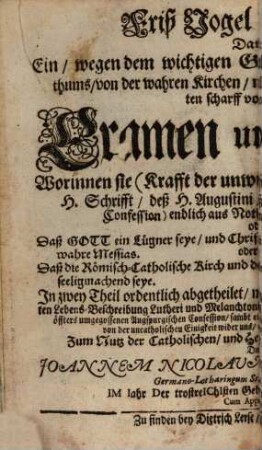 Friß Vogel
Ein / wegen dem wichtigen
thums / von der wahren Kirchen /
ten scharff
Examen
Worinnen sie (Krafft der
H. Schrifft / deß H. Augustini
Confession) endlich aus
Daß GOTT ein Lügner seye / und
wahre Messias.
Daß die Römisch-Catholische Kirch und
seeligmachend seye.
In zwey Theil ordentlich abgetheilet /
ten Lebens-Beschreibung Lutheri und
öffters umgegossenen Augspurgischen Confession / sambt
von der uncatholischen Einigkeit wider und /
Zum Nutz der Catholischen / und
JOANNEM NICOLAUM
Germano-Lotharingum
IM Iahr Der trostreIChIsten
Cum
Zu finden bey Dietrich Lerse /